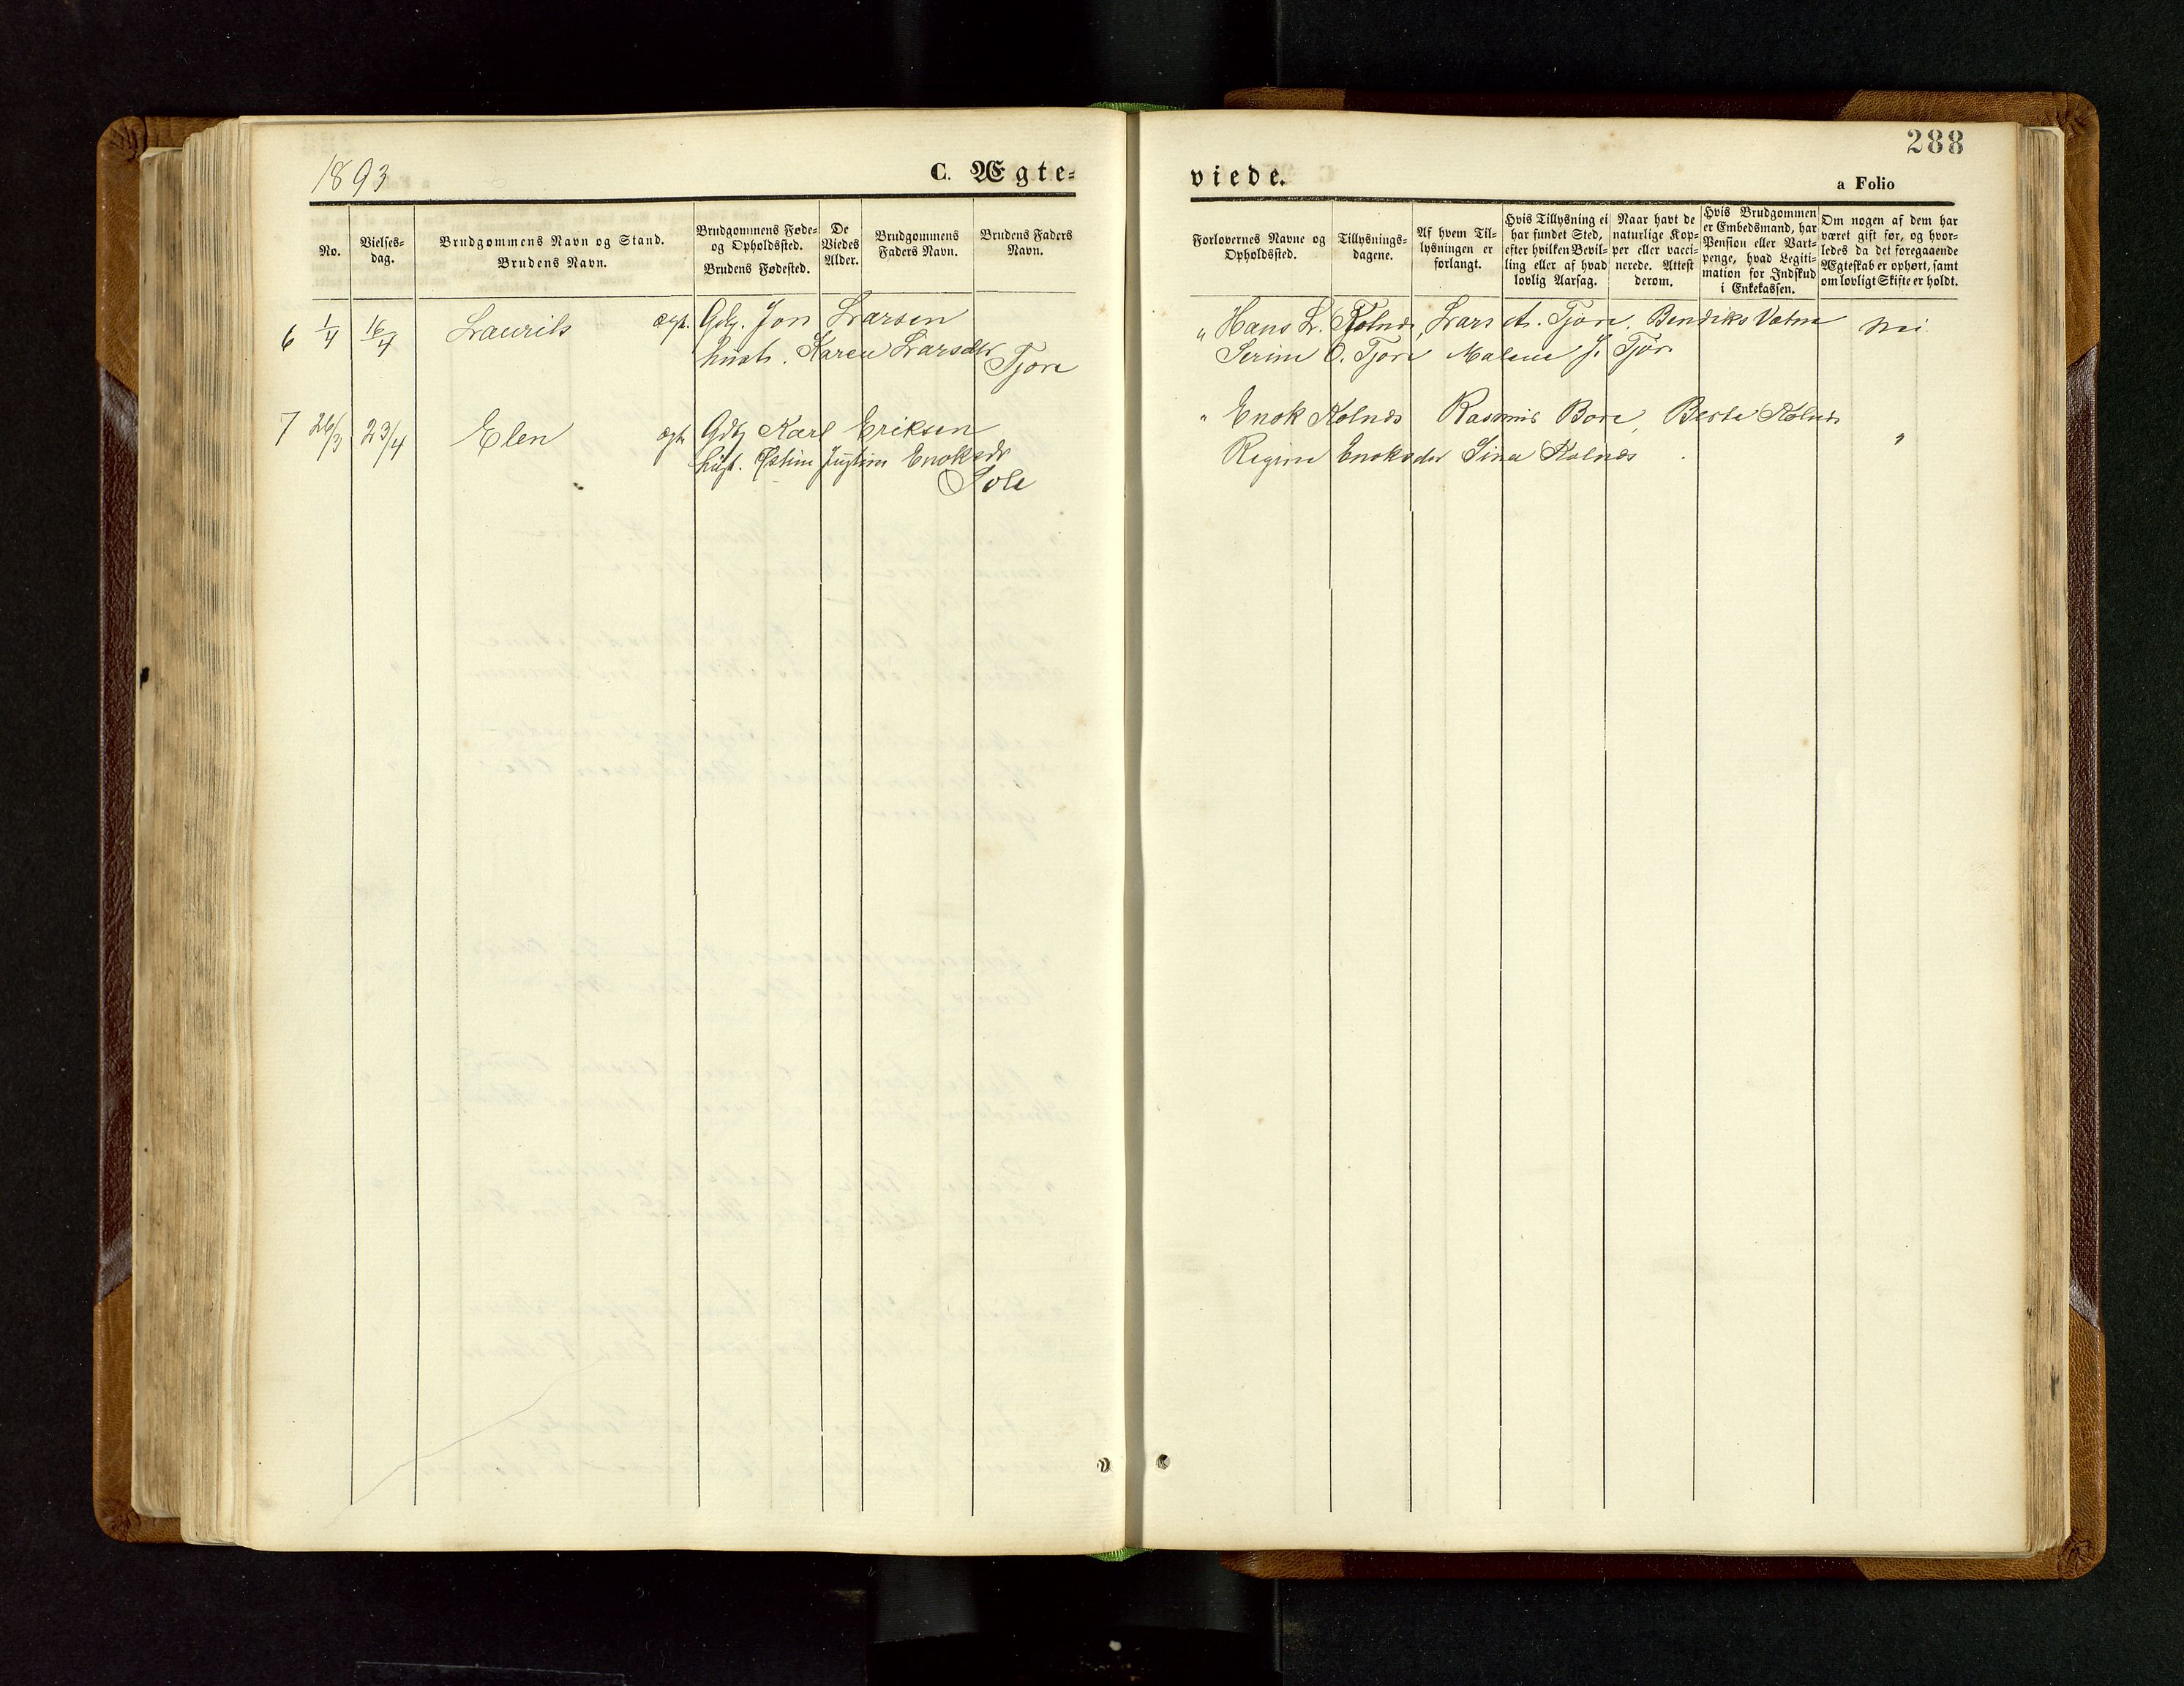 1893
C. Ægte-
No.
Vielses-
dag.
Brudgommens Navn og Stand.
Brudens Navn.
Brudgommens Føde-
og Opholdssted.
Brudens Fødested.
De
Viedes
Alder.
Brudgommens
Faders Navn.
Brudens Faders
Navn.
6 1/4 16/4 Laurits ægt. Gdb. Jon Larsen
hust. Karen Larsdtr
Tjore
7 26/3 23/4 Elen ægt. Gdb Karl Eriksen
hust. Justine Enoksdtr
Sole
288
viede.
a Folio
Forlovernes Navne og
Opholdssted.
Tillysnings-
dagene.
Af hvem Til-
lysningen er
forlangt.
Hvis Tillysning ei
har fundet Sted,
efter hvilken Bevil-
ling eller af hvad
lovlig Aarsag.
Naar havt de
naturlige Kop-
per eller vacci-
nerede. Attest
derom.
Hvis Brudgommen
er Embedsmand, har
Pension eller Vart-
penge, hvad Legiti-
mation for Indskud
i Enkekassen.
Om nogen af dem har
været gift før, og hvor-
ledes da det foregaaende
Ægteskab er ophørt, samt
om lovligt Skifte er holdt.
" Hans L. Kolnes, Lars A. Tjore, Bendiks Vatne Nei
Serine O. Tjore Malene J. Tjore
" Enok Kolnes Rasmus Bore, Berte Kolnes
Regine Enoksdtr Sina Kolnes "